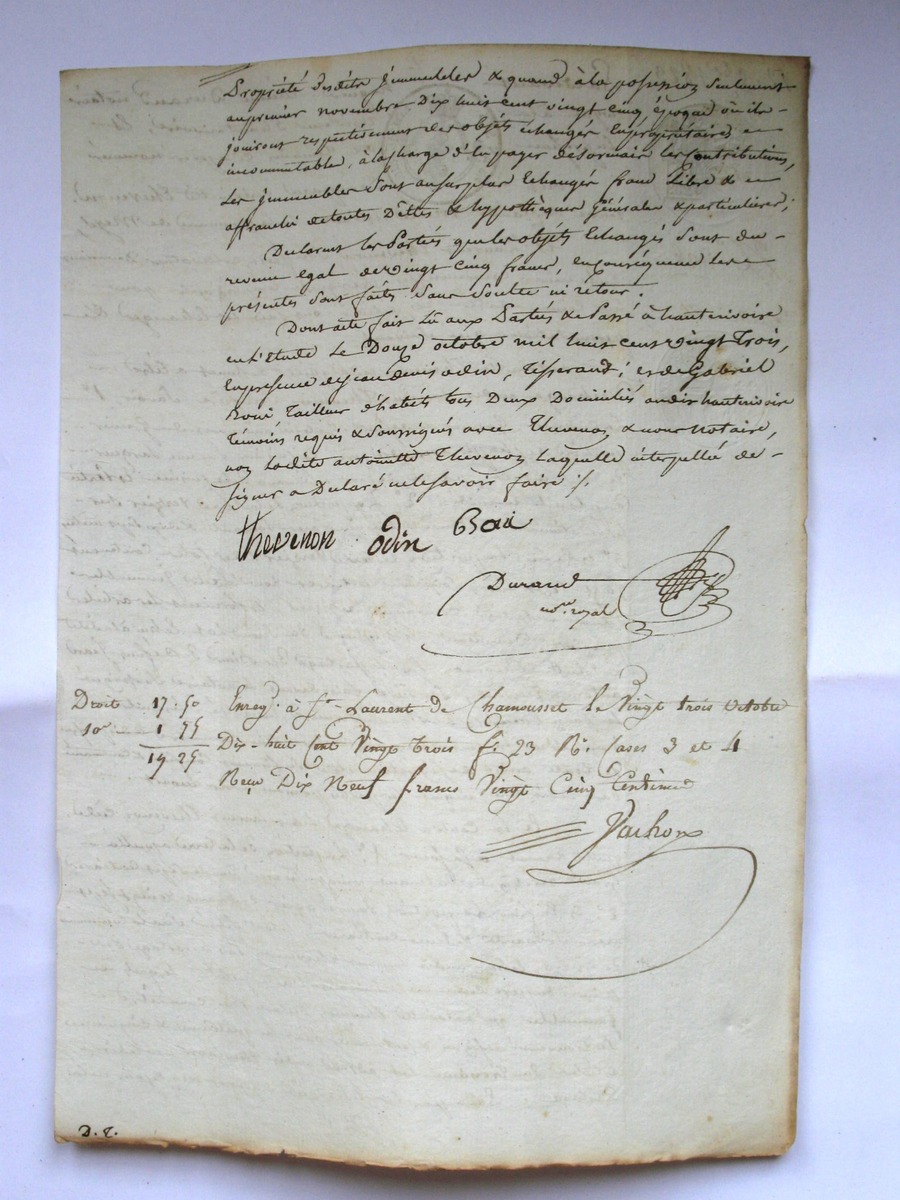 Propriété desdits Jmmeubles & quand à la possession seulement
aupremier novembre Dix huit cent vingt cinq, époque où ils
jouiront respectivement des objets échangés Enpropriétaires
incommutable, à la charge d'en payer désormais les Contributions,
Les jmmeubles Sont ausurplus Echangés franc Libre &
affranchi detoutes Dettes & hypothèques Générales & particulieres;
Declarent les Parties que les objets Echangés Sont du
revenu egal de vingt cinq francs, en conséquence les
présentes Sont faits Sans Soulte ni retour.
Dont acte fait Lû aux Parties & Passé à hauterivoire
en L'étude Le Douze octobre mil huit cent vingt Trois,
En présence de jean denis odin, Tisserand; et de Gabriel
Tailleur d'habits tous Deux Domiciliés audit hauterivoire
Témoins requis & Soussignés avec Thevenon & nous Notaire,
non Ladite antoinette Thevenon Laquelle interpellée de
Signer a Declaré ne le Savoir faire /.
thevenon odin
Durand
no.re royal
Droit 17.50 Enreg. à St. Laurent de Chamousset le Vingt trois Octobre
10e 1 75 Dix-huit Cent Vingt trois f. 23 Ro. Cases 3 et 4
19 25 Reçu Dix Neuf francs Vingt Cinq Centimes
Vachon
D. T.